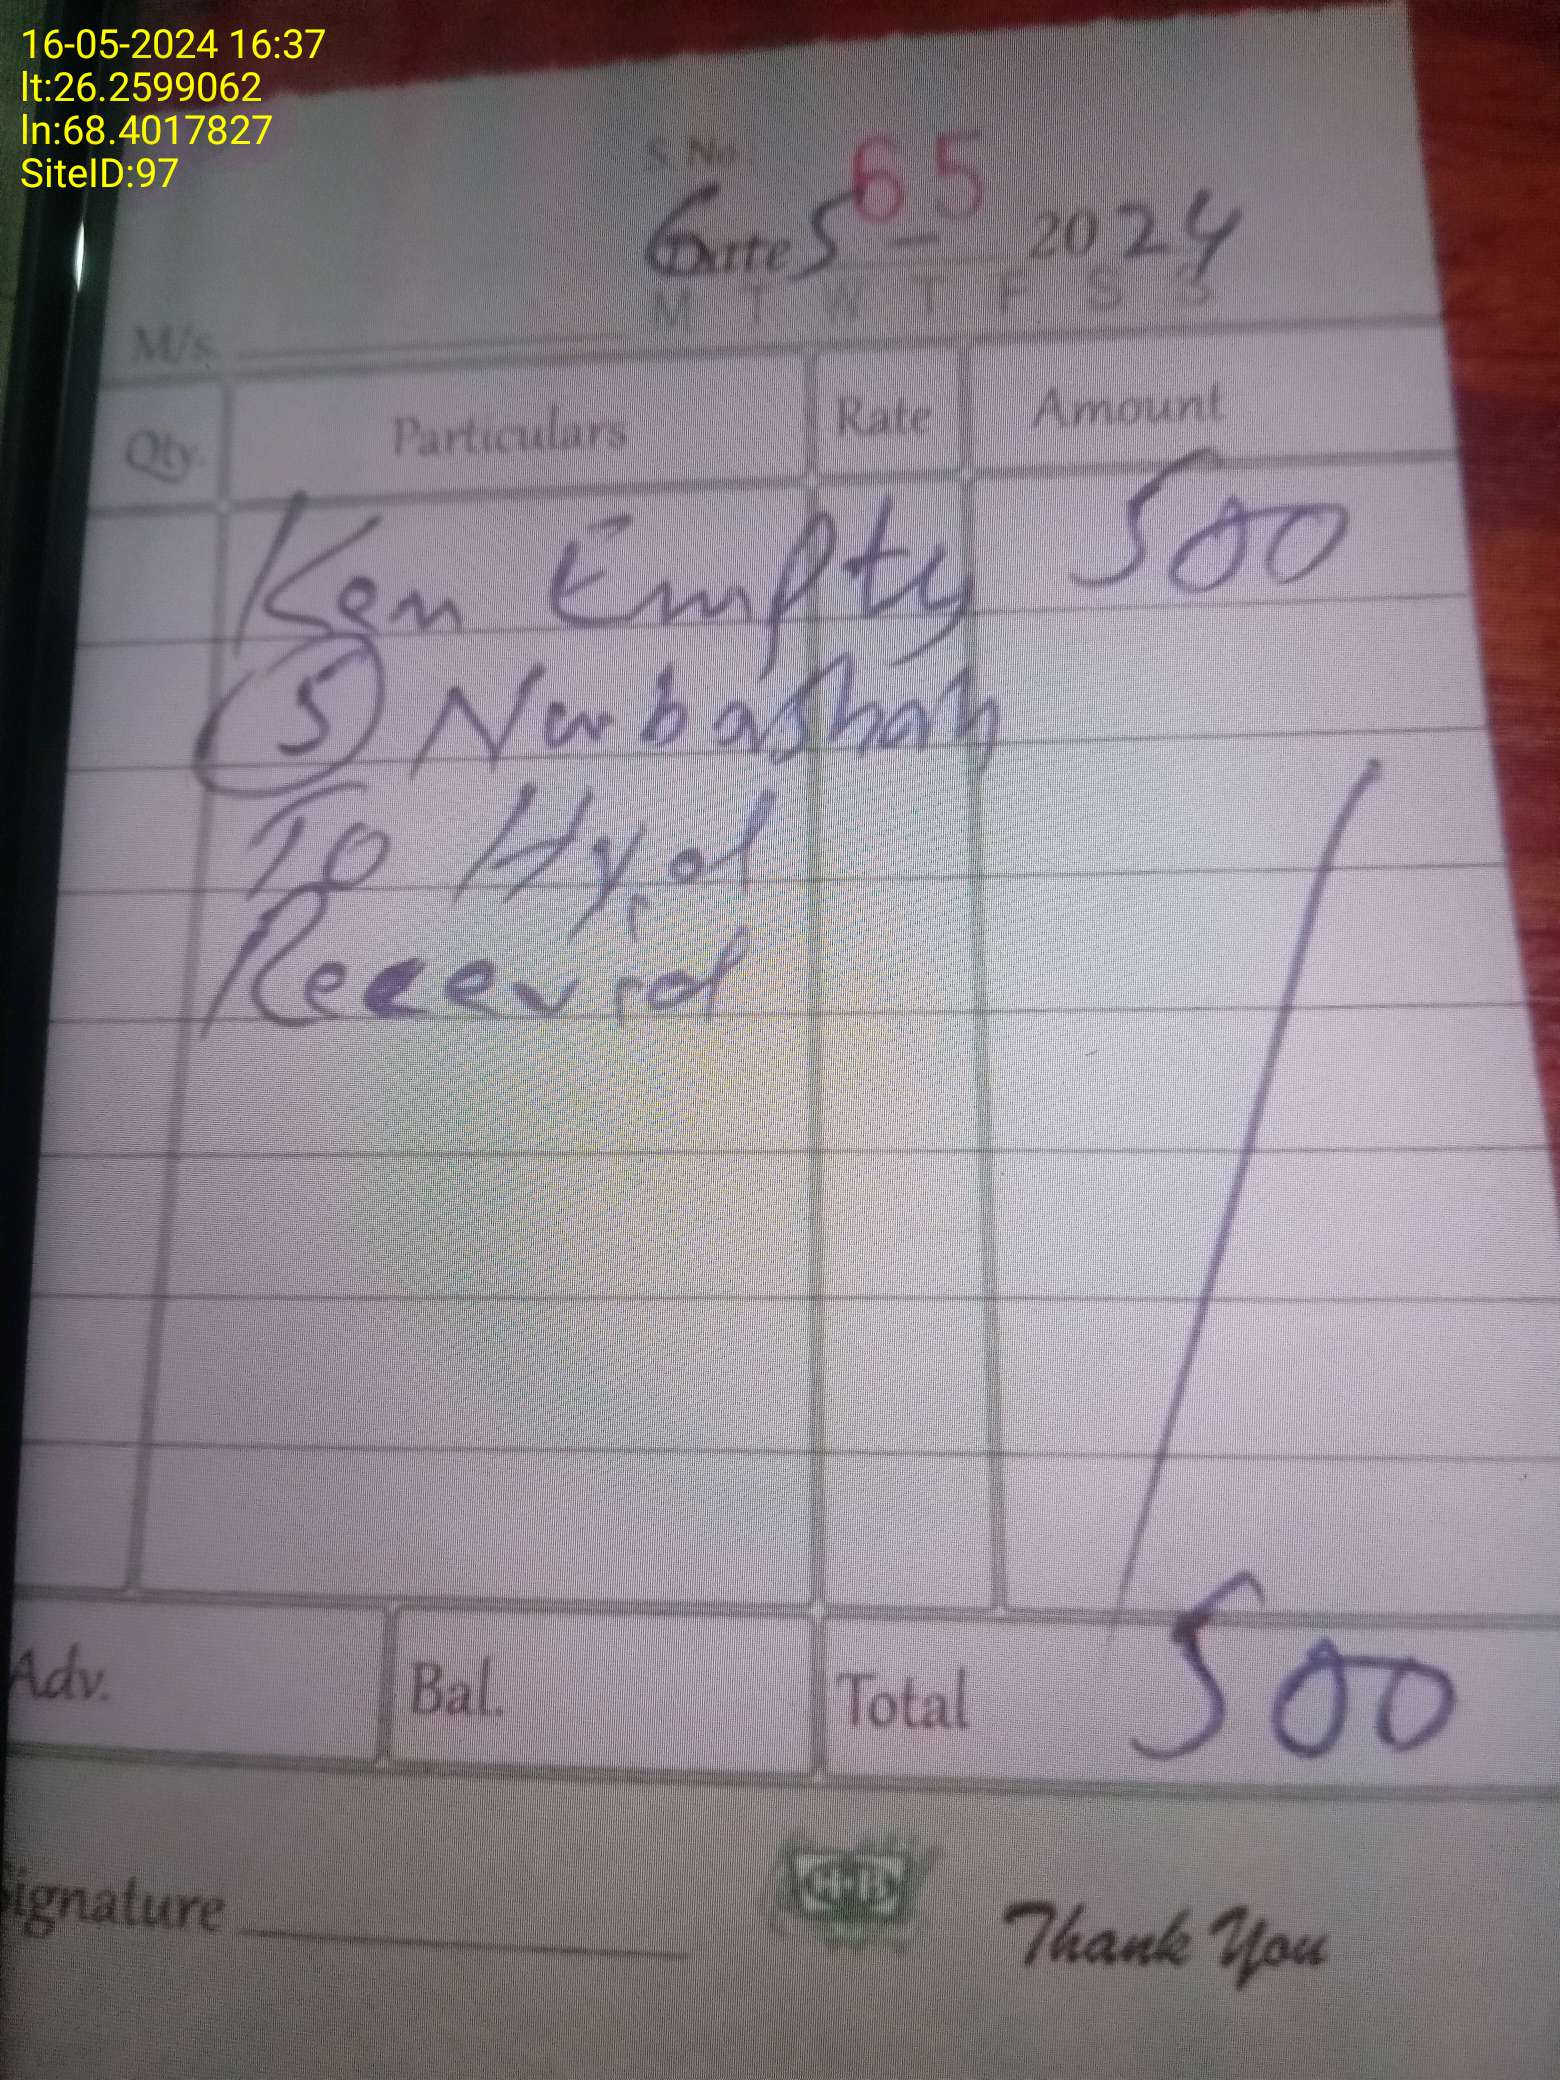 16-05-2024 16:37
lt:26.2599062
ln:68.4017827
SiteID:97
S.No. 65
Date 6 5 - 2024
M T W T F S S
M/s.
Qty. Particulars Rate Amount
Ken Empty 500
5 Nawbashah
To Hyd
Recevid
Adv. Bal. Total 500
Signature
Thank You